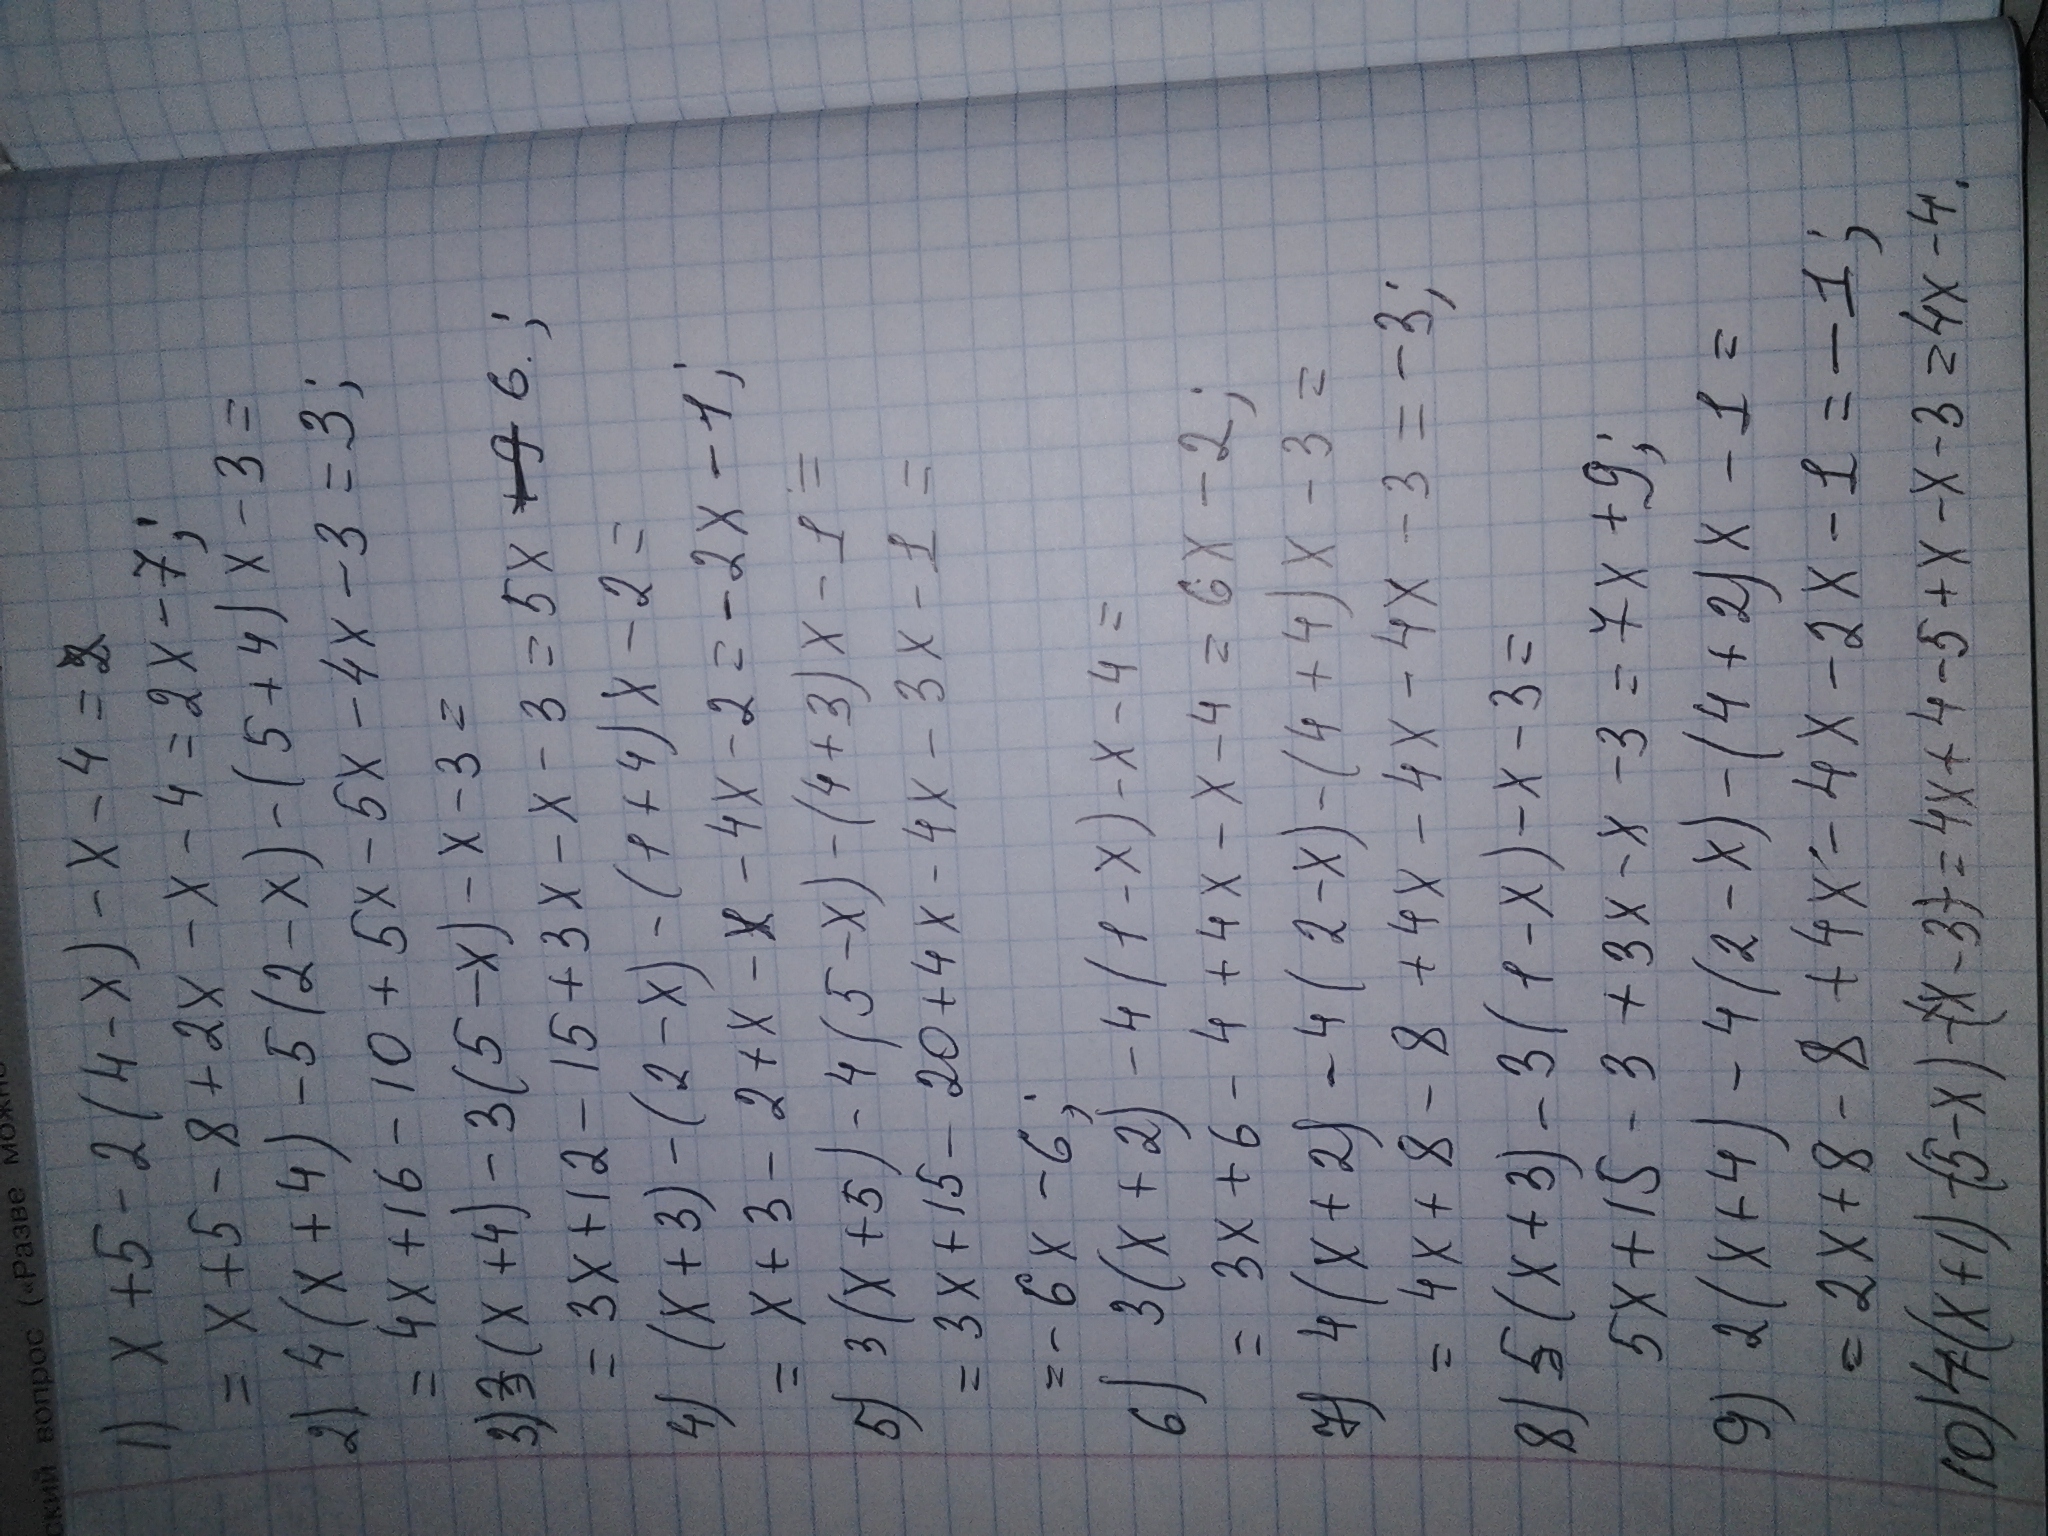 ский вопрос («Разве можно
1) x + 5 - 2(4 - x) - x - 4 = 2
= x + 5 - 8 + 2x - x - 4 = 2x - 7;
2) 4(x + 4) - 5(2 - x) - (5 + 4)x - 3 =
= 4x + 16 - 10 + 5x - 5x - 4x - 3 = 3;
3) 3(x + 4) - 3(5 - x) - x - 3 =
= 3x + 12 - 15 + 3x - x - 3 = 5x - 6.;
4) (x + 3) - (2 - x) - (1 + 4)x - 2 =
= x + 3 - 2 + x - x - 4x - 2 = -2x - 1;
5) 3(x + 5) - 4(5 - x) - (4 + 3)x - 1 =
= 3x + 15 - 20 + 4x - 4x - 3x - 1 =
= -6x - 6;
6) 3(x + 2) - 4(1 - x) - x - 4 =
= 3x + 6 - 4 + 4x - x - 4 = 6x - 2;
7) 4(x + 2) - 4(2 - x) - (4 + 4)x - 3 =
= 4x + 8 - 8 + 4x - 4x - 4x - 3 = -3;
8) 5(x + 3) - 3(1 - x) - x - 3 =
5x + 15 - 3 + 3x - x - 3 = 7x + 9;
9) 2(x + 4) - 4(2 - x) - (4 + 2)x - 1 =
= 2x + 8 - 8 + 4x - 4x - 2x - 1 = -1;
10) 4(x + 1) - (5 - x) - (x - 3) = 4x + 4 - 5 + x - x - 3 = 4x - 4.